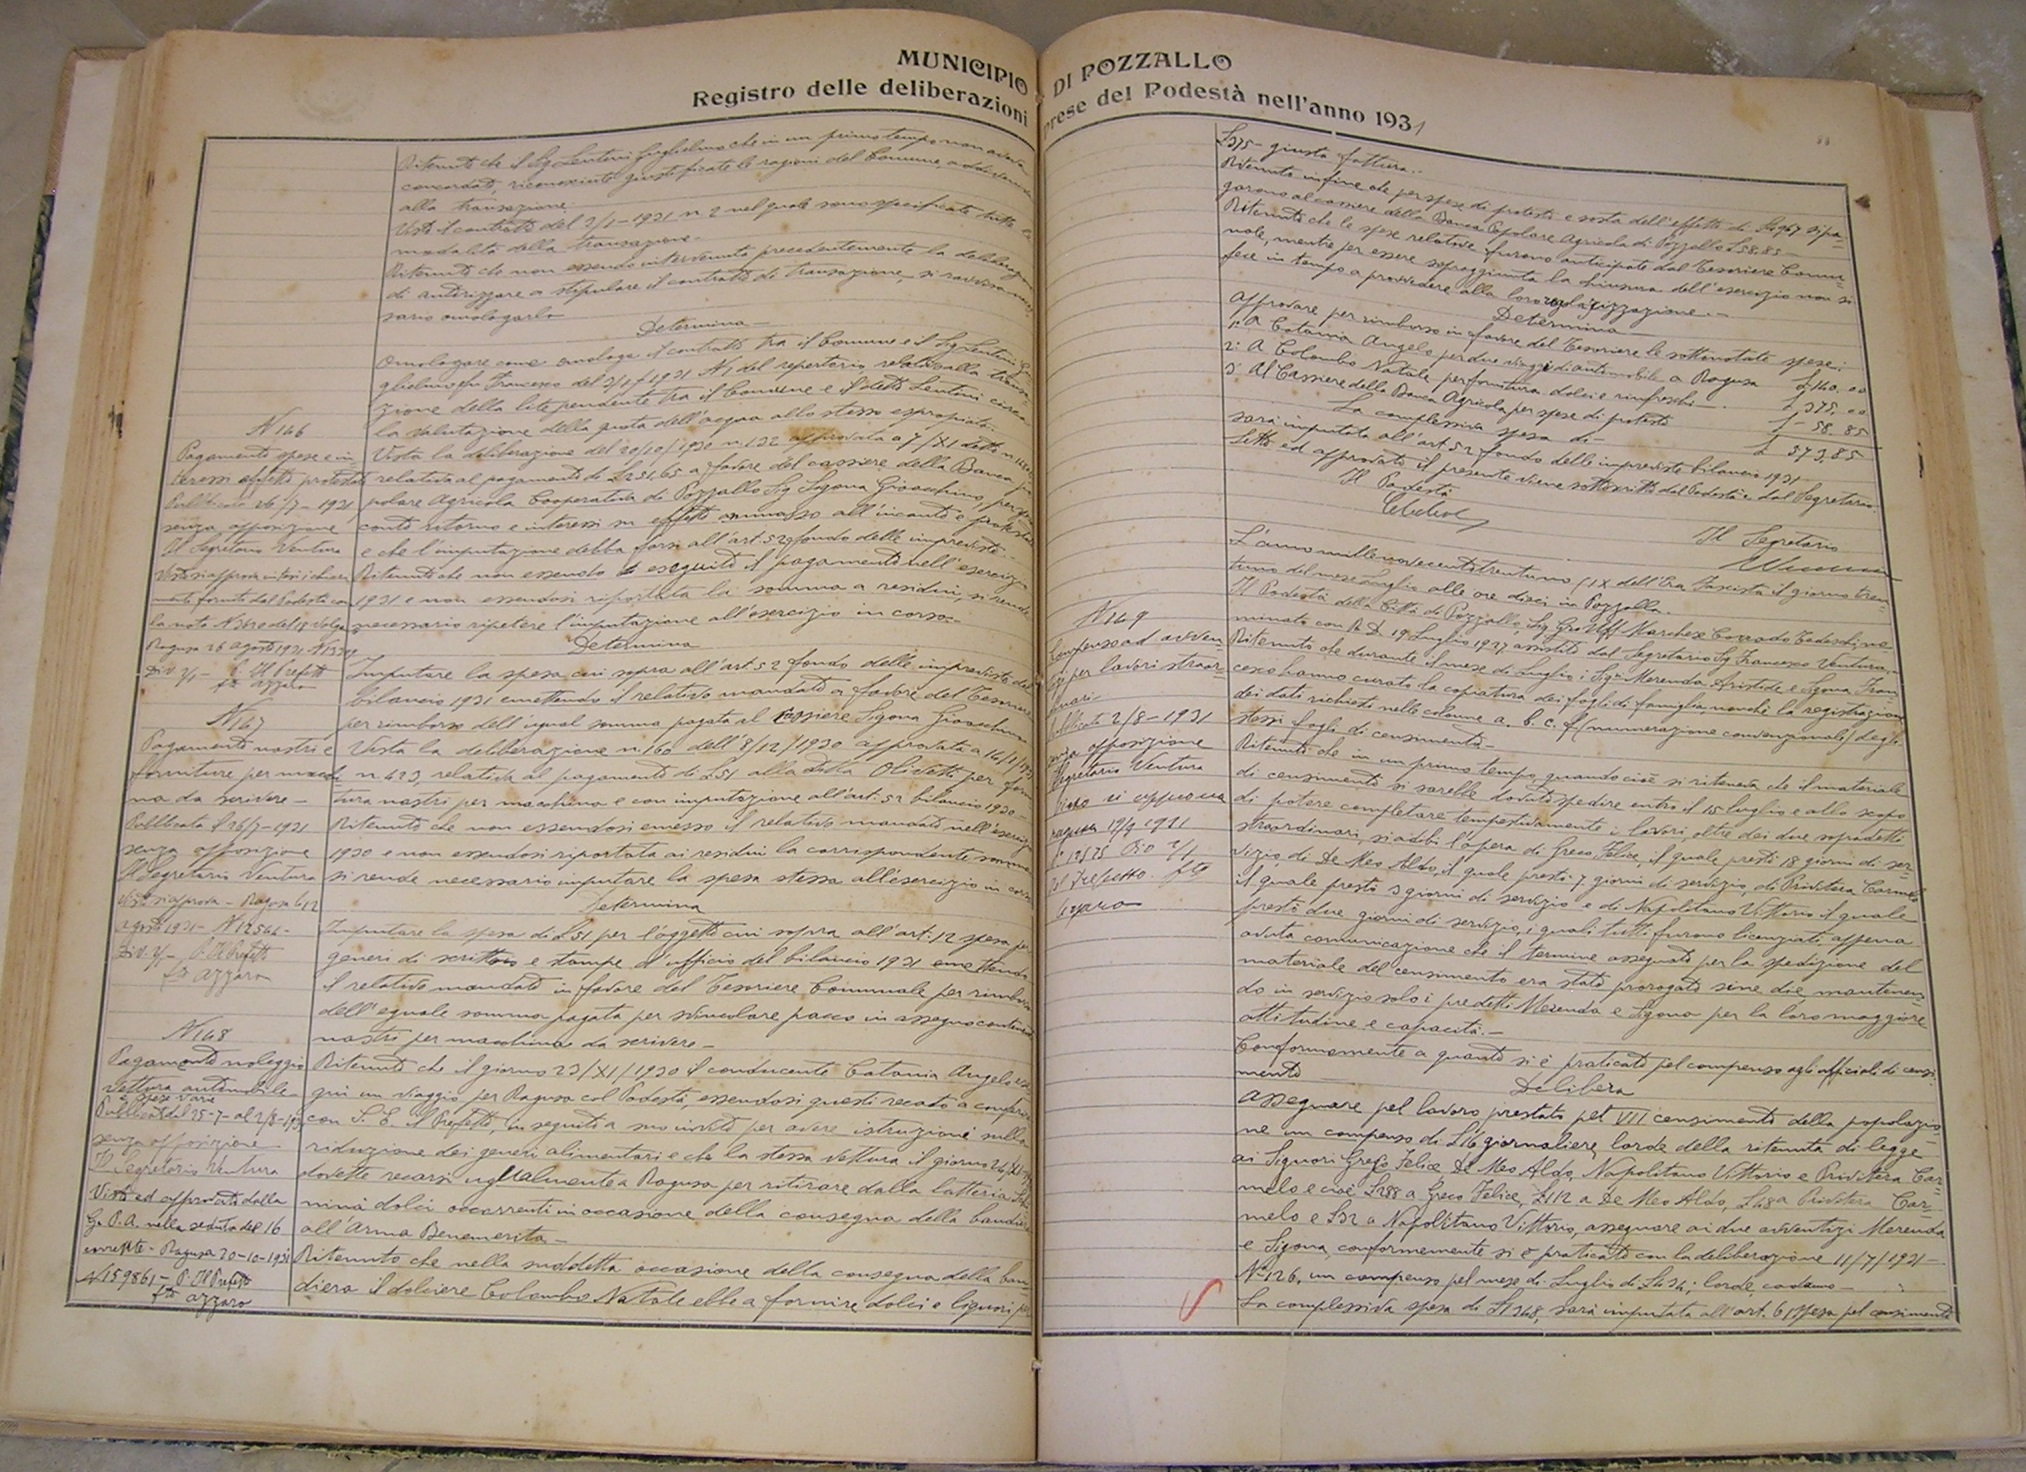 MUNICIPIO DI POZZALLO
Registro delle deliberazioni prese del Podestà nell'anno 1931
Ritenuto che il Sig. Lentini Guglielmo che in un primo tempo non aveva
concordato, riconosciute giustificate le ragioni del Comune, addivenne
alla transazione.
Visto il contratto del 3/1-1931 n. 2 nel quale sono specificate tutte le
modalità della transazione.-
Ritenuto che non essendo intervenuta precedentemente la deliberazione
di autorizzare a stipulare il contratto di transazione, si ravvisa neces-
sario omologarlo
Determina-
Omologare come omologa il contratto tra il Comune e il Sig. Lentini Gu-
glielmo fu Francesco del 3/1/1931 N del repertorio, relativo alla transa-
zione della lite pendente tra il Comune e il detto Lentini circa
la valutazione della quota dell'acqua allo stesso espropriata.-
N 166
Pagamento spese e in-
teressi effetti protestati
Pubblicato 26/7-1931
senza opposizione
Il Segretario Ventura
Visto si approva in tesi i chiari-
menti forniti dal Podestà con
la nota N 3620 del 18 volge
Ragusa 26 agosto 1931 N
Div. 2/1- P. Il Prefetto
fto Azzaro
Vista la deliberazione del 20/10/1930 n. 132 approvata a 7/XI detto n.
relativa al pagamento di L 251,65 a favore del cassiere della Banca Po-
polare Agricola Cooperativa di Pozzallo Sig. Sigona Gioacchino, per
conto ritorno e interessi su effetto ammesso all'incanto e protestato
e che l'imputazione debba farsi all'art. 52 fondo delle impreviste.-
Ritenuto che non essendo eseguito il pagamento nell'esercizio
1931 e non essendosi riportata la somma a residui, si rende
necessario ripetere l'imputazione all'esercizio in corso.-
Determina
Imputare la spesa cui sopra all'art. 52 fondo delle impreviste del
bilancio 1931 emettendo il relativo mandato a favore del Tesoriere
per rimborso dell'ugual somma pagata al Cassiere Sigona Gioacchino
N 167
Pagamento nastri e
forniture per macchi-
na da scrivere-
Pubblicata il 26/7-1931
senza opposizione
Il Segretario Ventura
Visto si approva - Ragusa li 12
agosto 1931- N 12566-
Div. 2/- P. Il Prefetto
fto Azzaro
Vista la deliberazione n. 160 dell'8/12/1930 approvata a 14/1/1931
n. 423, relativa al pagamento di L 51 alla ditta Olivetti per forni-
tura nastri per macchina e con imputazione all'art. 52 bilancio 1930-
Ritenuto che non essendosi emesso il relativo mandato nell'esercizio
1930 e non essendosi riportata ai residui la corrispondente somma
si rende necessario imputare la spesa stessa all'esercizio in corso
Determina
Imputare la spesa di L 51 per l'oggetto cui sopra all'art. 12 spesa per
generi di scrittoio e stampe d'ufficio del bilancio 1931 emettendo
il relativo mandato in favore del Tesoriere Comunale per rimborso
dell'eguale somma pagata per svincolare pacco in assegno contenente
nastri per macchina da scrivere-
N 168
Pagamento noleggio
vettura automobile
e spese varie
Pubblicato dal 25-7- al 2/8-1931
senza opposizione
Il Segretario Ventura
Visto ed approvato dalla
G.P.A. nella seduta del 16
corrente - Ragusa 20-10-1931
N 159861- P. Il Prefetto
fto Azzaro
Ritenuto che il giorno 23/XI/1930 il conducente Catania Angelo ese-
guì un viaggio per Ragusa col Podestà, essendosi questi recato a conferire
con S. E. il Prefetto, in seguito a suo invito per avere istruzioni sulla
riduzione dei generi alimentari e che la stessa vettura il giorno 26/XI
dovette recarsi ugualmente a Ragusa per ritirare dalla latteria
dolci occorrenti in occasione della consegna della bandiera
all'Arma Benemerita.-
Ritenuto che nella suddetta occasione della consegna della ban-
diera il dolciere Colombo Natale ebbe a fornire dolci e liquori per
L 375- giusta fattura..
Ritenuto infine che per spese di protesto e sosta dell'effetto di L 4967 si pa-
garono al cassiere della Banca Popolare Agricola di Pozzallo L 58.85-
Ritenuto che le spese relative furono anticipate dal Tesoriere Comu-
nale, mentre per essere sopraggiunta la chiusura dell'esercizio non si
fece in tempo a provvedere alla loro regolarizzazione.-
Determina
Approvare per rimborso in favore del Tesoriere le sottonotate spese:
1° A Catania Angelo per due viaggi di automobile a Ragusa L 140.00
2° A Colombo Natale per fornitura dolci e rinfreschi L 375.00
3° Al Cassiere della Banca Agricola per spese di protesto L 58.85
La complessiva spesa di L 573,85
sarà imputata all'art. 52 fondo delle impreviste bilancio 1931
Letto ed approvato il presente viene sottoscritto dal Podestà e dal Segretario
Il Podestà
Il Segretario
L'anno millenovecentotrentuno /IX dell'Era Fascista il giorno tren-
tuno del mese Luglio alle ore dieci in Pozzallo.
Il Podestà della Città di Pozzallo, Sig. Gr. Uff. Marchese Corrado Tedeschi, no-
minato con R. D. 19 Luglio 1927 assistito dal Segretario Sig. Francesco Ventura.-
N 169
Compenso ad avven-
tizi per lavori straor-
dinari-
Pubblicata 2/8-1931
senza opposizione
Segretario Ventura
Visto si approva
Ragusa 19/9 1931
N° 13175 Div 2/1
Il Prefetto fto
Azzaro
Ritenuto che durante il mese di Luglio i Sig.ri Merenda Aristide e Sigona Fran-
cesco hanno curato la copiatura dei fogli di famiglia, nonchè la registrazione
dei dati richiesti nelle colonne a. b. c. f (numerazione convenzionali) degli
stessi fogli di censimento-
Ritenuto che in un primo tempo, quando cioè si riteneva che il materiale
di censimento si sarebbe dovuto spedire entro il 15 luglio e allo scopo
di potere completare tempestivamente i lavori, oltre dei due sopradetti
straordinari, si adibì l'opera di Greco Felice, il quale prestò 18 giorni di ser-
vizio, di De Meo Aldo, il quale prestò 7 giorni di servizio, di Privitera Carmelo
il quale prestò 3 giorni di servizio e di Napolitano Vittorio il quale
prestò due giorni di servizio, i quali tutti furono licenziati, appena
avuta comunicazione che il termine assegnato per la spedizione del
materiale del censimento era stato prorogato sine die mantenen-
do in servizio solo i predetti Merenda e Sigona per la loro maggiore
attitudine e capacità.-
Conformemente a quanto si è praticato pel compenso agli ufficiali di censi-
mento
Delibera
Assegnare pel lavoro prestato pel VII censimento della popolazio-
ne un compenso di L 16 giornaliere lorde della ritenuta di legge
ai Signori Greco Felice, De Meo Aldo, Napolitano Vittorio e Privitera Car-
melo e cioè L 288 a Greco Felice, L 112 a De Meo Aldo, L 48 a Privitera Car-
melo e L 32 a Napolitano Vittorio, assegnare ai due avventizi Merenda
e Sigona, conformemente si è praticato con la deliberazione 11/7/1931-
N° 126, un compenso pel mese di Luglio di L 434; lorde, cadauno-
La complessiva spesa di L 1348, sarà imputata all'art. 61 spesa pel censimento